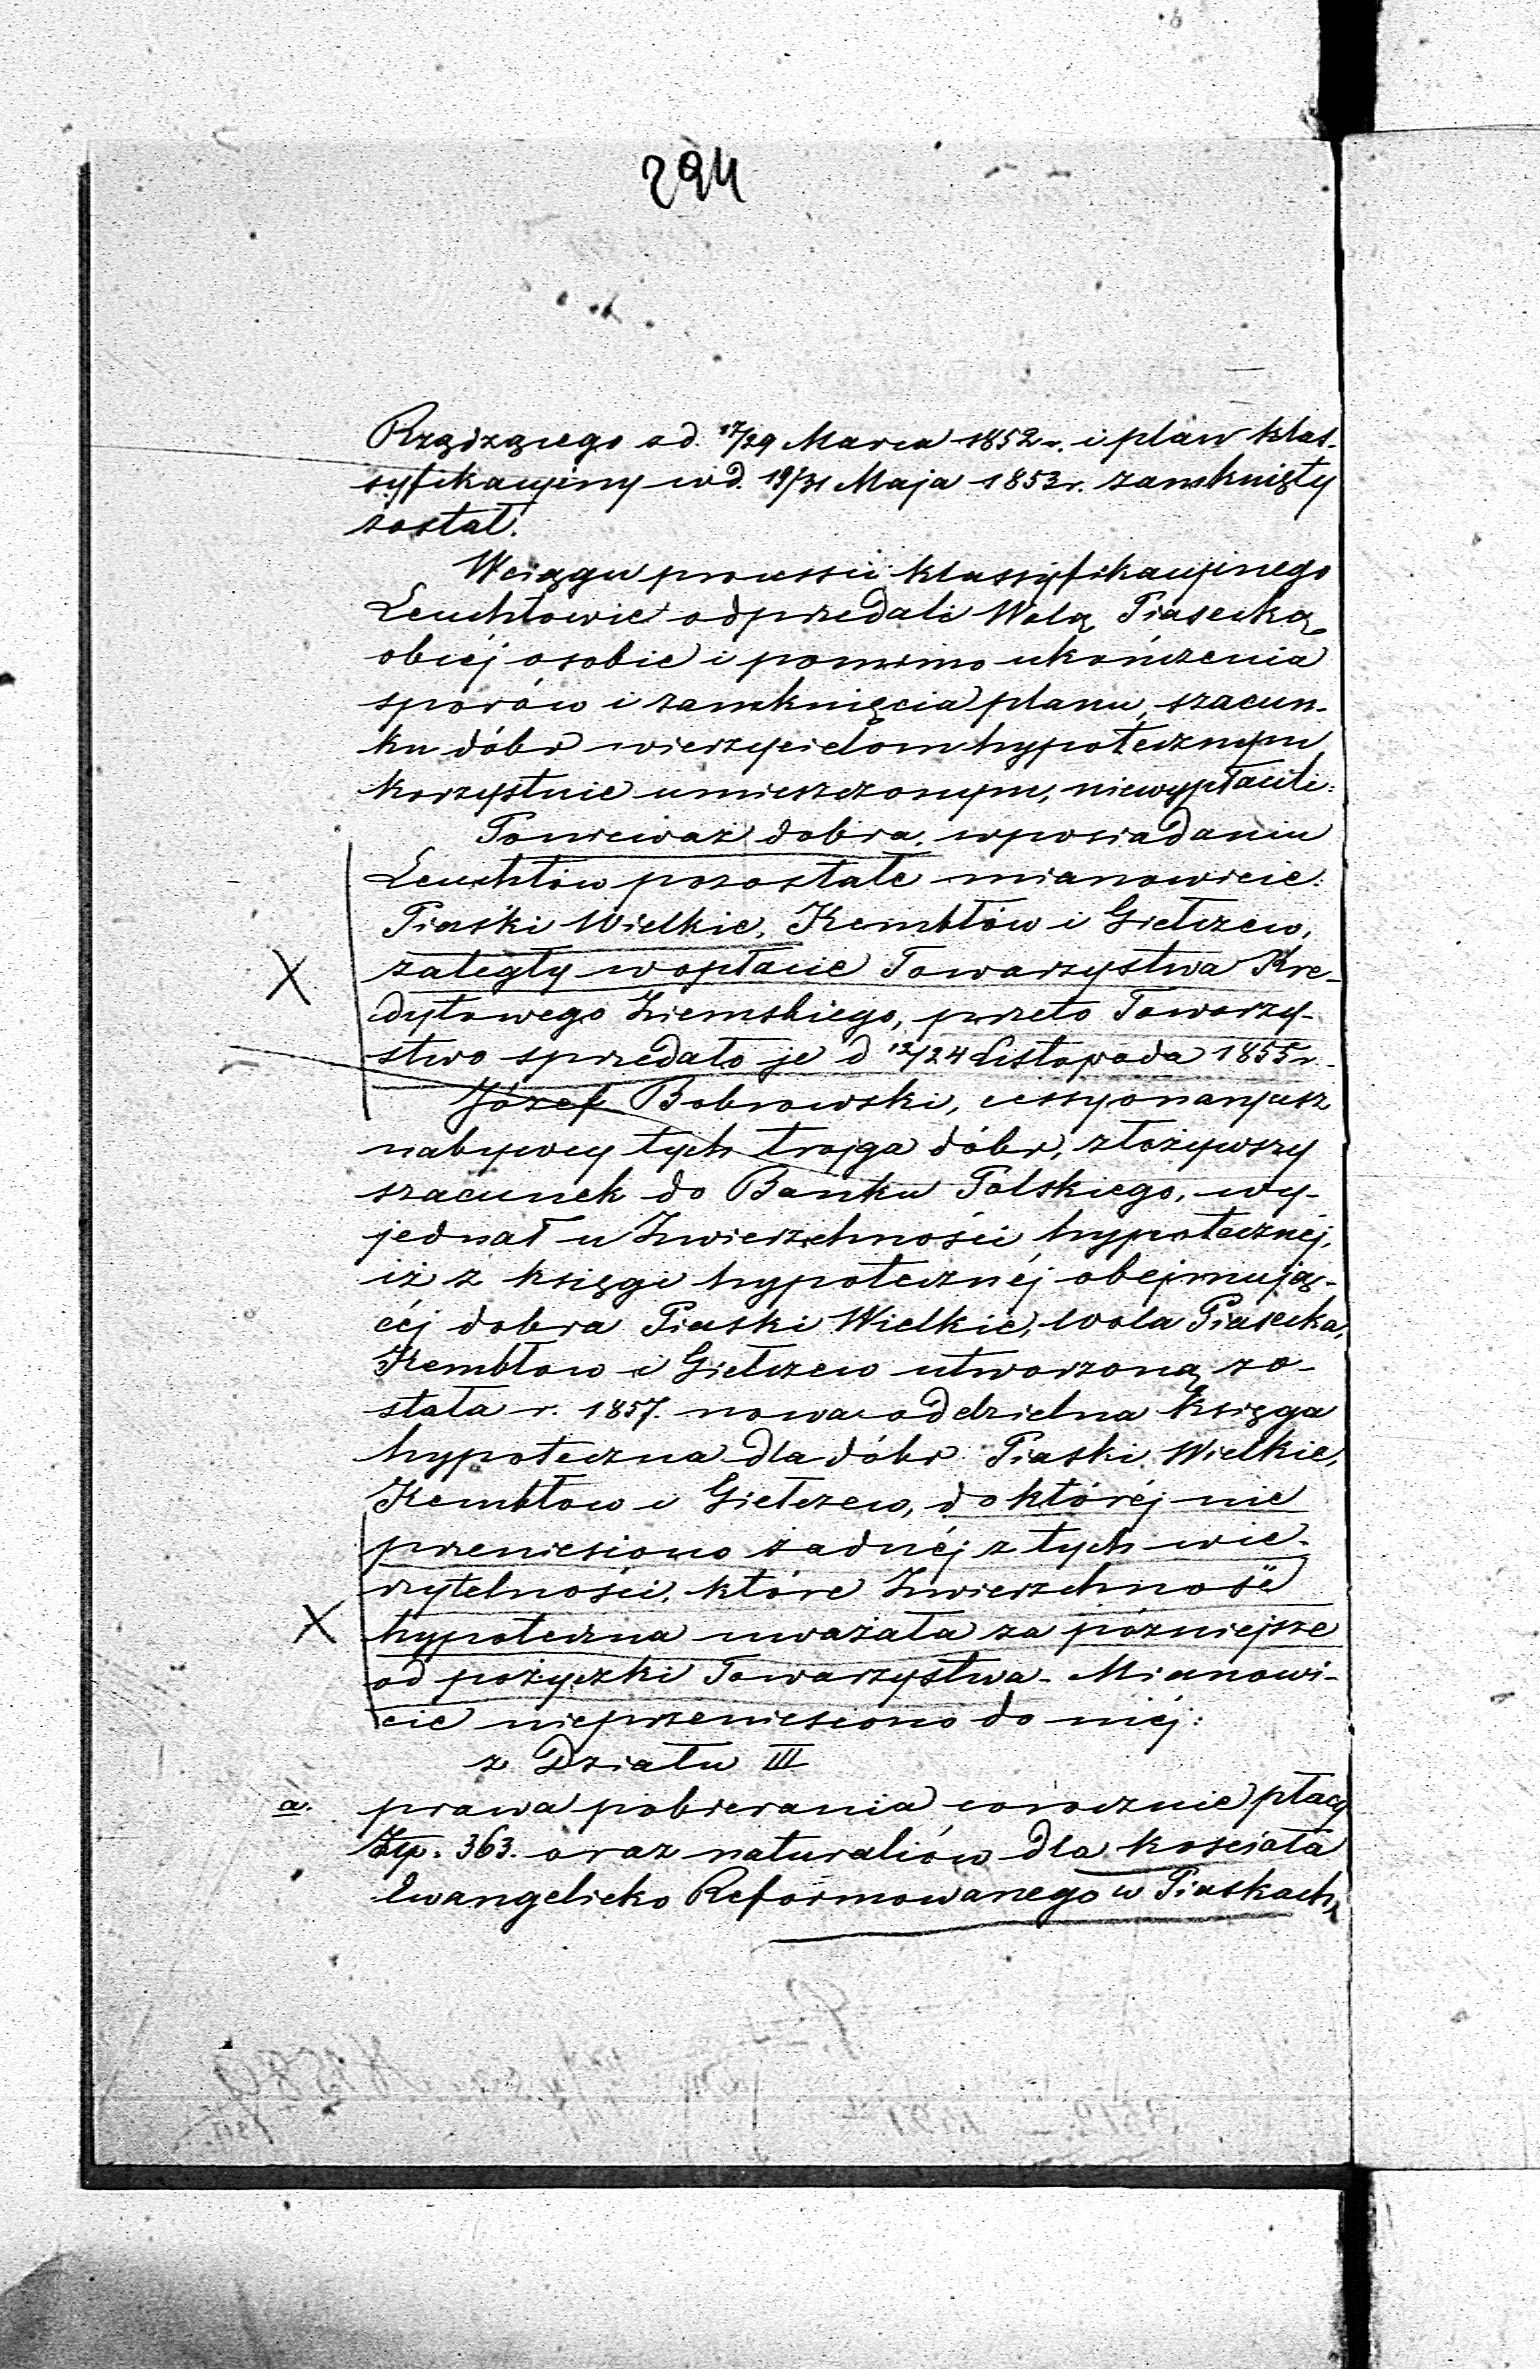 294
Rządzącego od 17/29 Marca 1852 r. i plan klas-
syfikacyjny w d. 19/31 Maja 1853 r. zamknięty
został.
W ciągu processu klassyfikacyjnego
Leuchtowie odprzedali Wolą Piasecką
obcéj osobie i pomimo ukończenia
sporów i zamknięcia planu, szacun-
ku dóbr wierzycielom hypotecznym
korzystnie umieszczonym, niewypłacili.
Ponieważ dobra, w posiadaniu
Leuchtów pozostałe mianowicie:
Piaski Wielkie, Kembłów i Giełczew,
zaległy w opłacie Towarzystwa Kre-
dytowego Ziemskiego, przeto Towarzy-
stwo sprzedało je d 12/24 Listopada 1855 r.
Józef Bobrowski, cessyonaryusz
nabywcy tych trojga dóbr, złożywszy
szacunek do Banku Polskiego, wy-
jednał u Zwierzchności hypotecznéj,
iż z księgi hypotecznéj obejmują-
céj dobra Piaski Wielkie, Wola Piasecka,
Kembłow i Giełczew utworzoną zo-
stała r. 1857. nowa oddzielna księga
hypoteczna dla dóbr Piaski Wielkie,
Kembłow i Giełczew, do któréj nie
przeniesiono żadnéj z tych wie-
rzytelności, które Zwierzchność
X
hypoteczna uważała za późniejsze
X
od pożyczki Towarzystwa. Mianowi-
cie nieprzeniesiono do niéj:
z Działu III
a. prawa pobierania corocznie płacy
Złp. 363. oraz naturaliów dla kościoła
Ewangelicko Reformowanego w Piaskach,